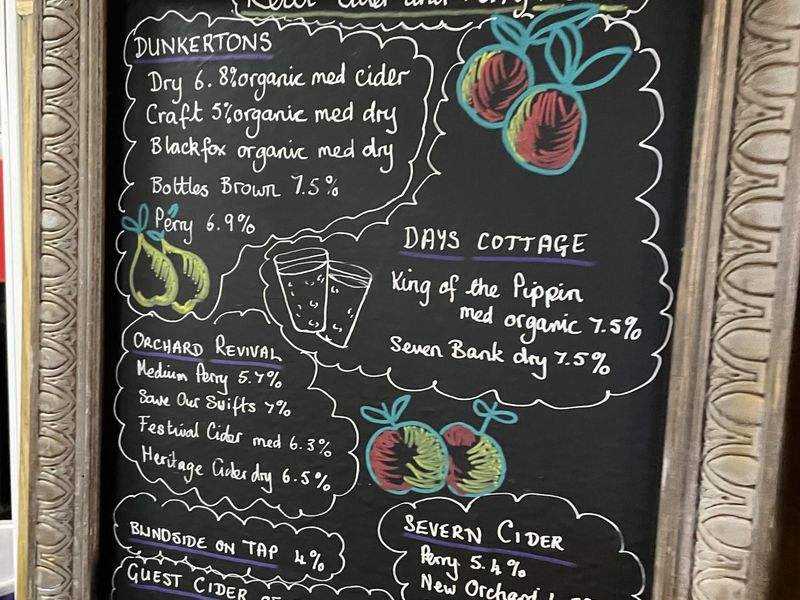 Real Cider and Perry
DUNKERTONS
Dry 6.8% organic med cider
Craft 5% organic med dry
Blackfox organic med dry
Bottles Brown 7.5%
Perry 6.9%
DAYS COTTAGE
King of the Pippin
med organic 7.5%
Seven Bank dry 7.5%
ORCHARD REVIVAL
Medium Perry 5.7%
Save Our Swifts 7%
Festival Cider med 6.3%
Heritage Cider dry 6.5%
BLINDSIDE ON TAP 4%
GUEST CIDER
SEVERN CIDER
Perry 5.4%
New Orchard